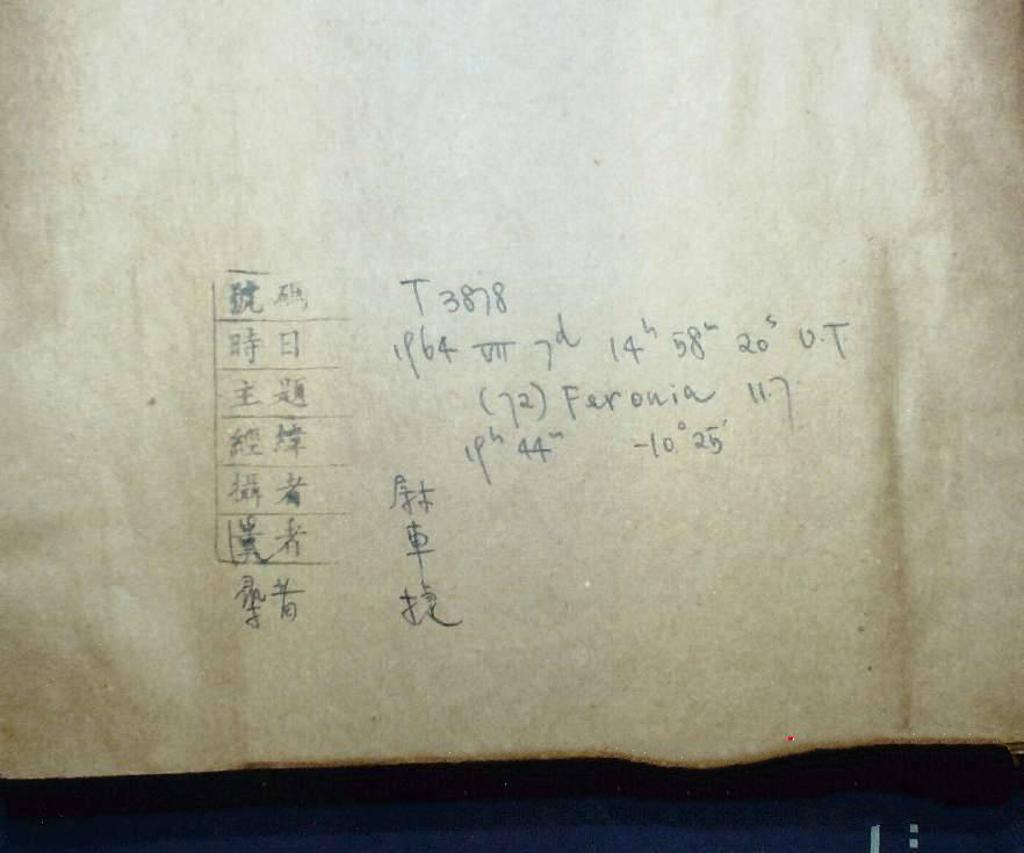 號碼 T 3878
時日 1964 VII 7ᵈ 14ʰ 58ᵐ 20ˢ U.T
主題 (72) Feronia 11.7
經緯 19ʰ 44ᵐ -10° 25′
攝者
者 車